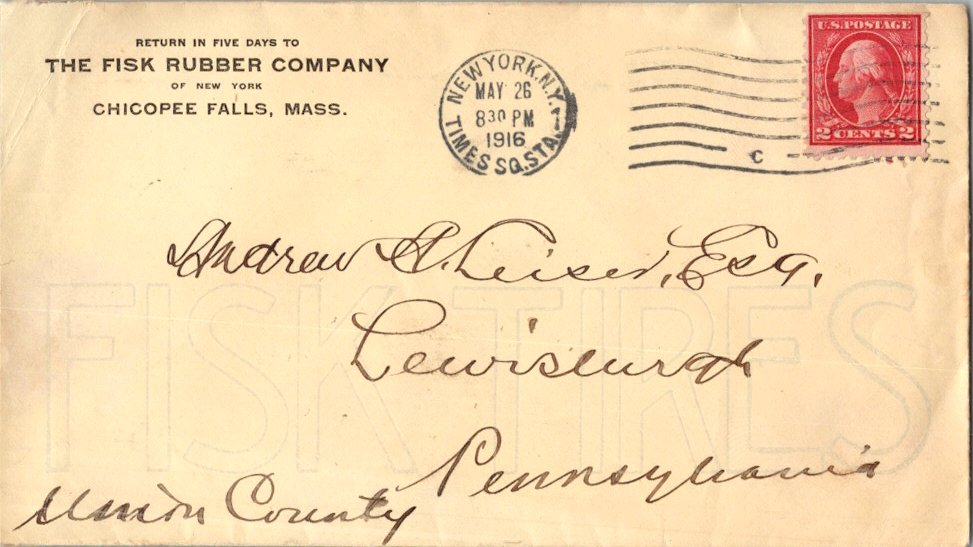 RETURN IN FIVE DAYS TO
THE FISK RUBBER COMPANY
OF NEW YORK
CHICOPEE FALLS, MASS.
NEW YORK, N.Y.
MAY 26
8 30 PM
1916
TIMES SQ. STA.
C
U.S. POSTAGE
2 CENTS 2
Andrew A. Leiser, Esq.
Lewisburgh
Pennsylvania
Union County
FISK TIRES